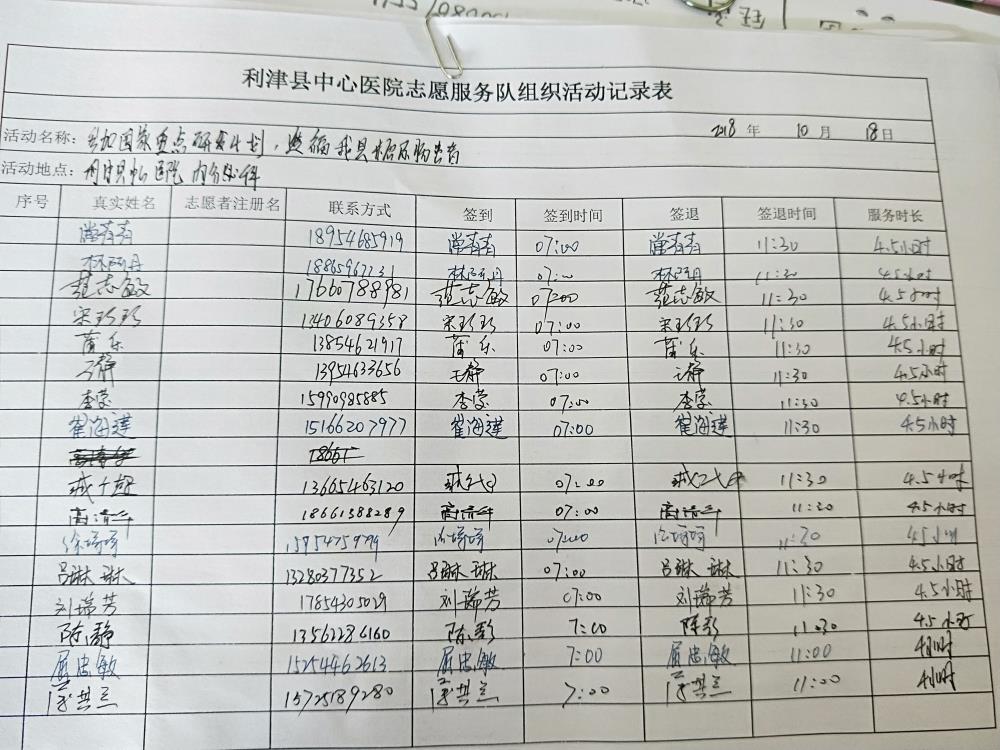 利津县中心医院志愿服务队组织活动记录表
2018 年 10 月 18日
活动名称: 参加国家重点研发计划,造福我县糖尿病患者
活动地点: 利津县中心医院 内分泌科
序号 真实姓名 志愿者注册名 联系方式 签到 签到时间 签退 签退时间 服务时长
18954685919 07:00 11:30 4.5小时
林阿丹 18865967731 林阿丹 07:00 林阿丹 11:30 4.5小时
范志敏 17660788981 范志敏 07:00 范志敏 11:30 4.5小时
宋珍珍 13406089358 宋珍珍 07:00 宋珍珍 11:30 4.5小时
蒲乐 13854621917 蒲乐 07:00 蒲乐 11:30 4.5小时
王静 13954633656 王静 07:00 王静 11:30 4.5小时
李蒙 15990985885 李蒙 07:00 李蒙 11:30 4.5小时
崔海莲 15166207977 崔海莲 07:00 崔海莲 11:30 4.5小时
18661
13665463120 07:00 11:30 4.5小时
高清华 18661388289 高清华 07:00 高清华 11:30 4.5小时
徐婷婷 徐婷婷 07:00 徐婷婷 11:30 4.5小时
吕琳琳 13280377352 吕琳琳 07:00 吕琳琳 11:30 4.5小时
刘瑞芳 17854305029 刘瑞芳 07:00 刘瑞芳 11:30 4.5小时
陈静 13562286160 陈静 7:00 陈静 11:30 4.5小时
屈忠敏 15254462613 屈忠敏 7:00 屈忠敏 11:00 4小时
15725189280 7:00 11:00 4小时